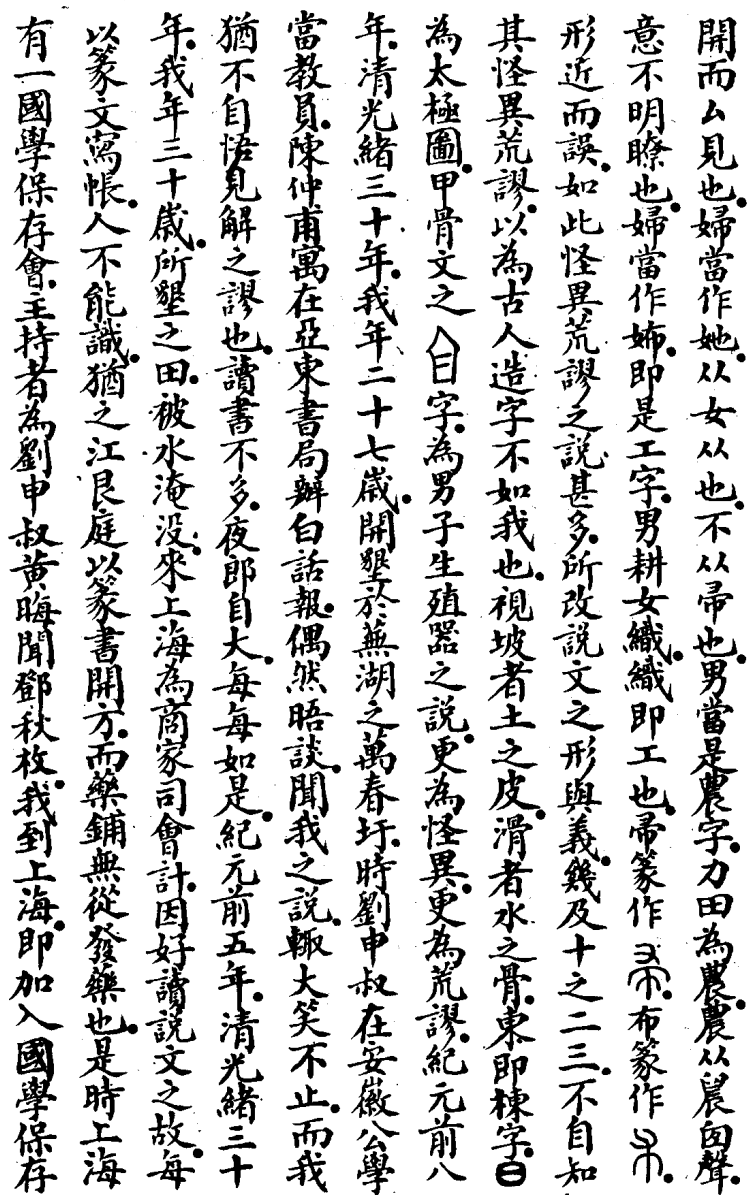 開而厶見也。婦當作她。从女从也。不从帚也。男當是農字。力田為農。農从晨囟聲。
意不明瞭也。婦當作姉。即是工字。男耕女織。織即工也。帚篆作 布篆作
形近而誤。如此怪異荒謬之說甚多。所改說文之形與義。幾及十之二三。不自知
其怪異荒謬。以為古人造字不如我也。視坡者土之皮。滑者水之骨。東即棟字。日
為太極圖。甲骨文之 字。為男子生殖器之說。更為怪異。更為荒謬。紀元前八
年。清光緒三十年。我年二十七歲。開墾於蕪湖之萬春圩。時劉申叔在安徽公學
當教員。陳仲甫寓在亞東書局辦白話報。偶然晤談。聞我之說。輙大笑不止。而我
猶不自悟見解之謬也。讀書不多。夜郎自大。每每如是。紀元前五年。清光緒三十
年。我年三十歲。所墾之田。被水淹没。來上海為商家司會計。因好讀說文之故。每
以篆文寫帳。人不能識。猶之江艮庭以篆書開方。而藥鋪無從發藥也。是時上海
有一國學保存會。主持者為劉申叔黃晦聞鄧秋枚。我到上海。即加入國學保存